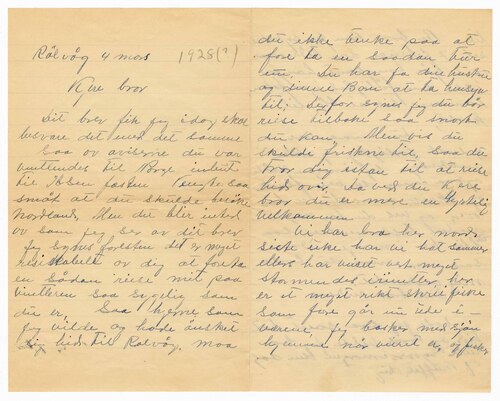 Rålvåg 4 mars 1928(?)
Kjære bror
Dit brev fik jeg idag skal
besvare det med det samme
Saa ov aviserne du var
ventendes til Norge
til Tenkte saa
smaat at du skulde besøke
Nordland. Men du blir
ov som jeg ser av dit brev
jeg synes forresten det er meget
av dig at foreta
en Sådan reise mit paa
vinteren saa sygelig som
du er. Saa gjerne som
jeg vilde og hadde ønsket
dig hid til Rålvåg, maa
du ikke tenke paa at
fore ta en Saadan tur
nu. Du har jo din hustru
og dinne Barn at ta hensyn
til; Derfor synes jeg du bør
reise tilbake saa snart
du kan. Men vis du
skulde friskne til, saa du
tror dig istan til at reise
hid over, Da ved du kjære
bror du er mere en hjertelig
velkommen
Vi har bra her nord
siste uke har vi hat sommer
ellers har viset vert meget
stormendes i vinter, her
er et meget rikt skreifiske
som fore går nu ute i
værene, jeg
hjemme når veiret er, og fisker